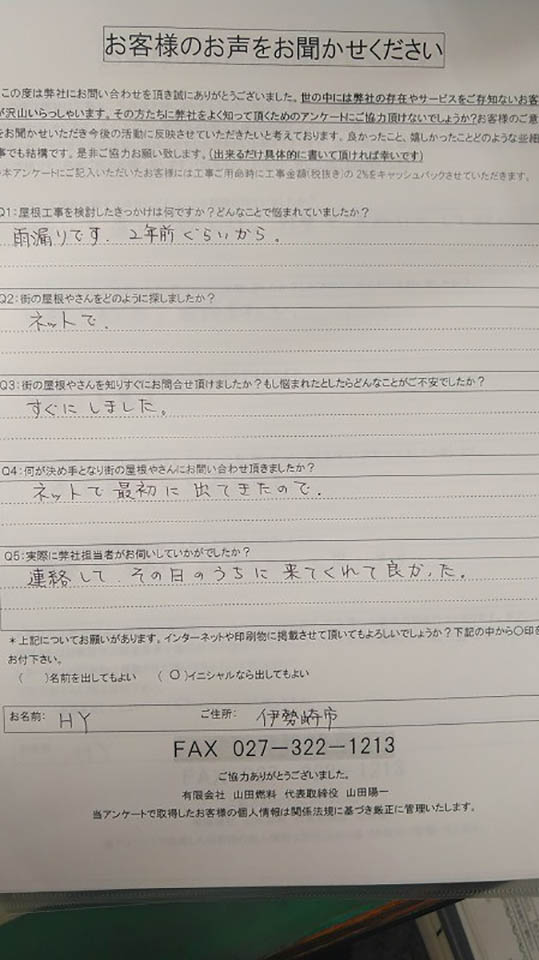 お客様のお声をお聞かせください
この度は弊社にお問い合わせを頂き誠にありがとうございました。世の中には弊社の存在やサービスをご存知ないお客
が沢山いらっしゃいます。その方たちに弊社をよく知って頂くためのアンケートにご協力頂けないでしょうか?お客様のご意
をお聞かせいただき今後の活動に反映させていただきたいと考えております。良かったこと、嬉しかったことどのような些細
事でも結構です。是非ご協力お願い致します。(出来るだけ具体的に書いて頂ければ幸いです)
本アンケートにご記入いただいたお客様には工事ご用命時に工事金額(税抜き)の2%をキャッシュバックさせていただきます。
Q1:屋根工事を検討したきっかけは何ですか?どんなことで悩まれていましたか?
雨漏りです。2年前ぐらいから。
Q2:街の屋根やさんをどのように探しましたか?
ネットで。
Q3:街の屋根やさんを知りすぐにお問合せ頂けましたか?もし悩まれたとしたらどんなことがご不安でしたか?
すぐにしました。
Q4:何が決め手となり街の屋根やさんにお問い合わせ頂きましたか?
ネットで最初に出てきたので。
Q5:実際に弊社担当者がお伺いしていかがでしたか?
連絡して、その日のうちに来てくれて良かった。
*上記についてお願いがあります。インターネットや印刷物に掲載させて頂いてもよろしいでしょうか?下記の中から〇印を
お付下さい。
( )名前を出してもよい (○)イニシャルなら出してもよい
お名前: HY ご住所: 伊勢崎市
FAX 027-322-1213
ご協力ありがとうございました。
有限会社 山田燃料 代表取締役 山田陽一
当アンケートで取得したお客様の個人情報は関係法規に基づき厳正に管理いたします。